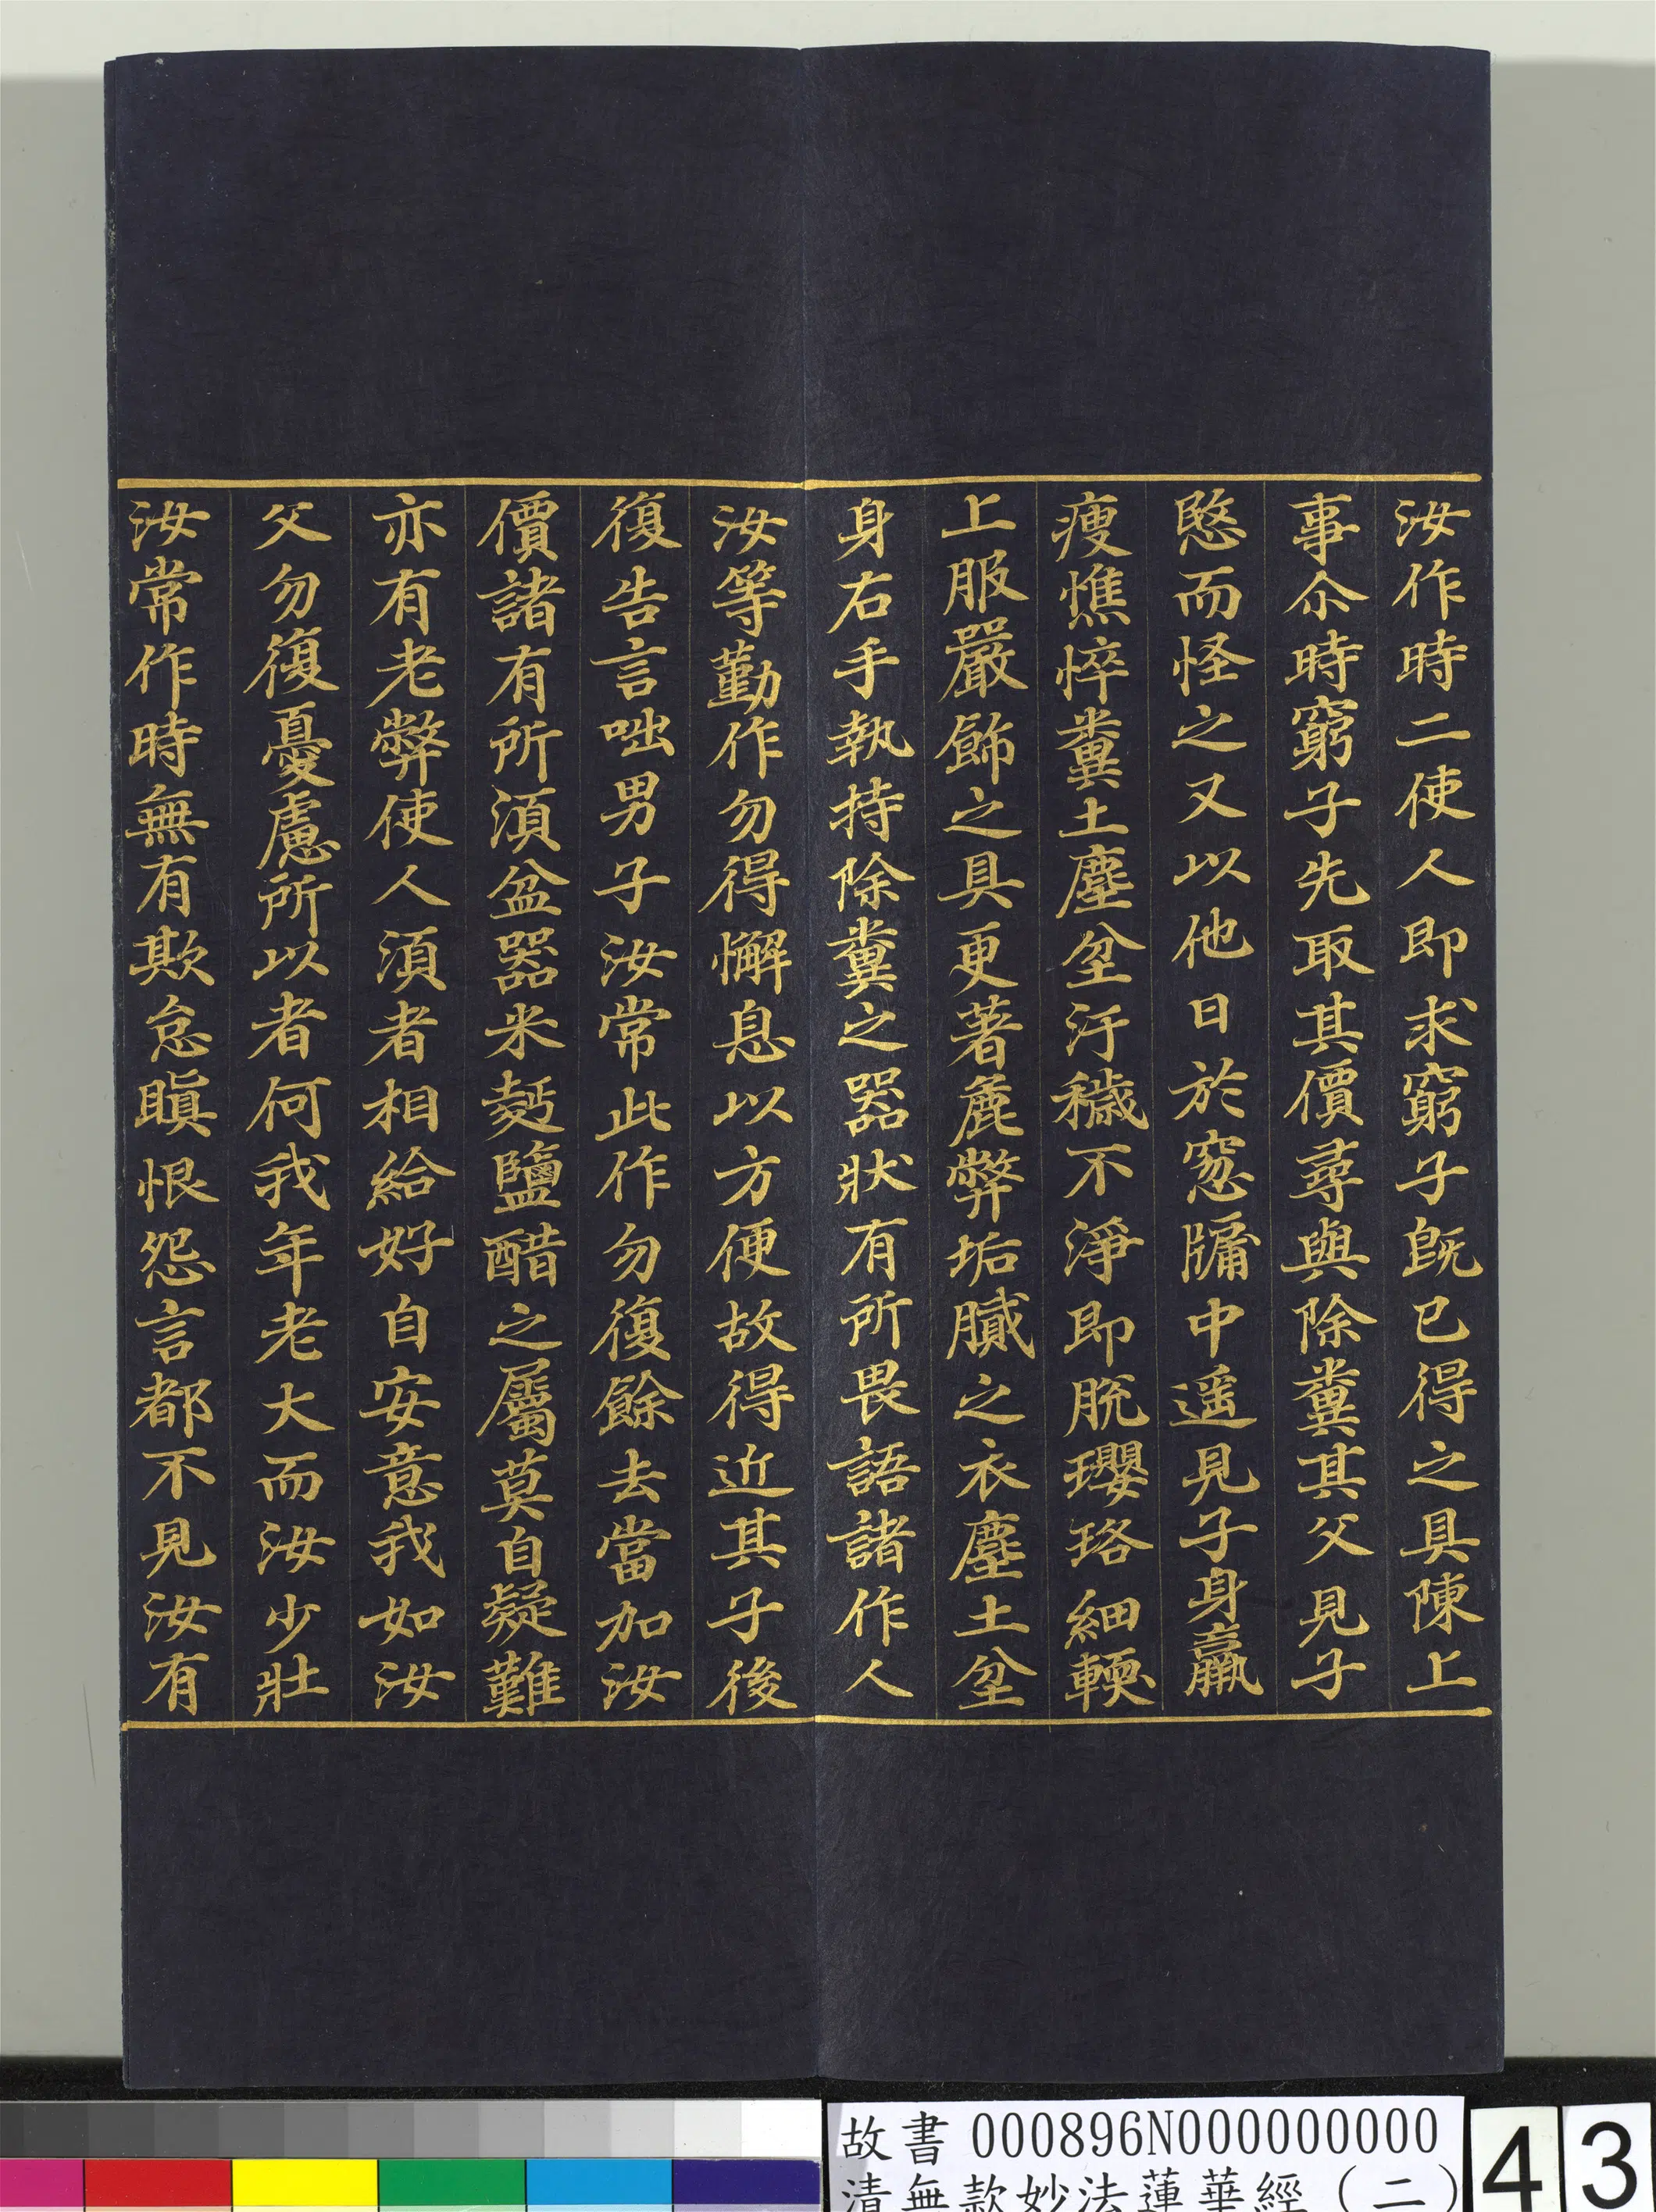 汝作時二使人即求窮子旣已得之具陳上
事尒時窮子先取其價尋與除糞其父見子
愍而怪之又以他日於窓牖中遥見子身羸
瘦憔悴糞土塵坌汙穢不淨即脫瓔珞細輭
上服嚴飾之具更著麁弊垢膩之衣塵土坌
身右手執持除糞之器狀有所畏語諸作人
汝等勤作勿得懈息以方便故得近其子後
復告言咄男子汝常此作勿復餘去當加汝
價諸有所湏盆器米麫鹽醋之屬莫自疑難
亦有老弊使人湏者相給好自安意我如汝
父勿復憂慮所以者何我年老大而汝少壯
汝常作時無有欺怠瞋恨怨言都不見汝有
故書 000896N000000000
清無款妙法蓮華經（二）
43